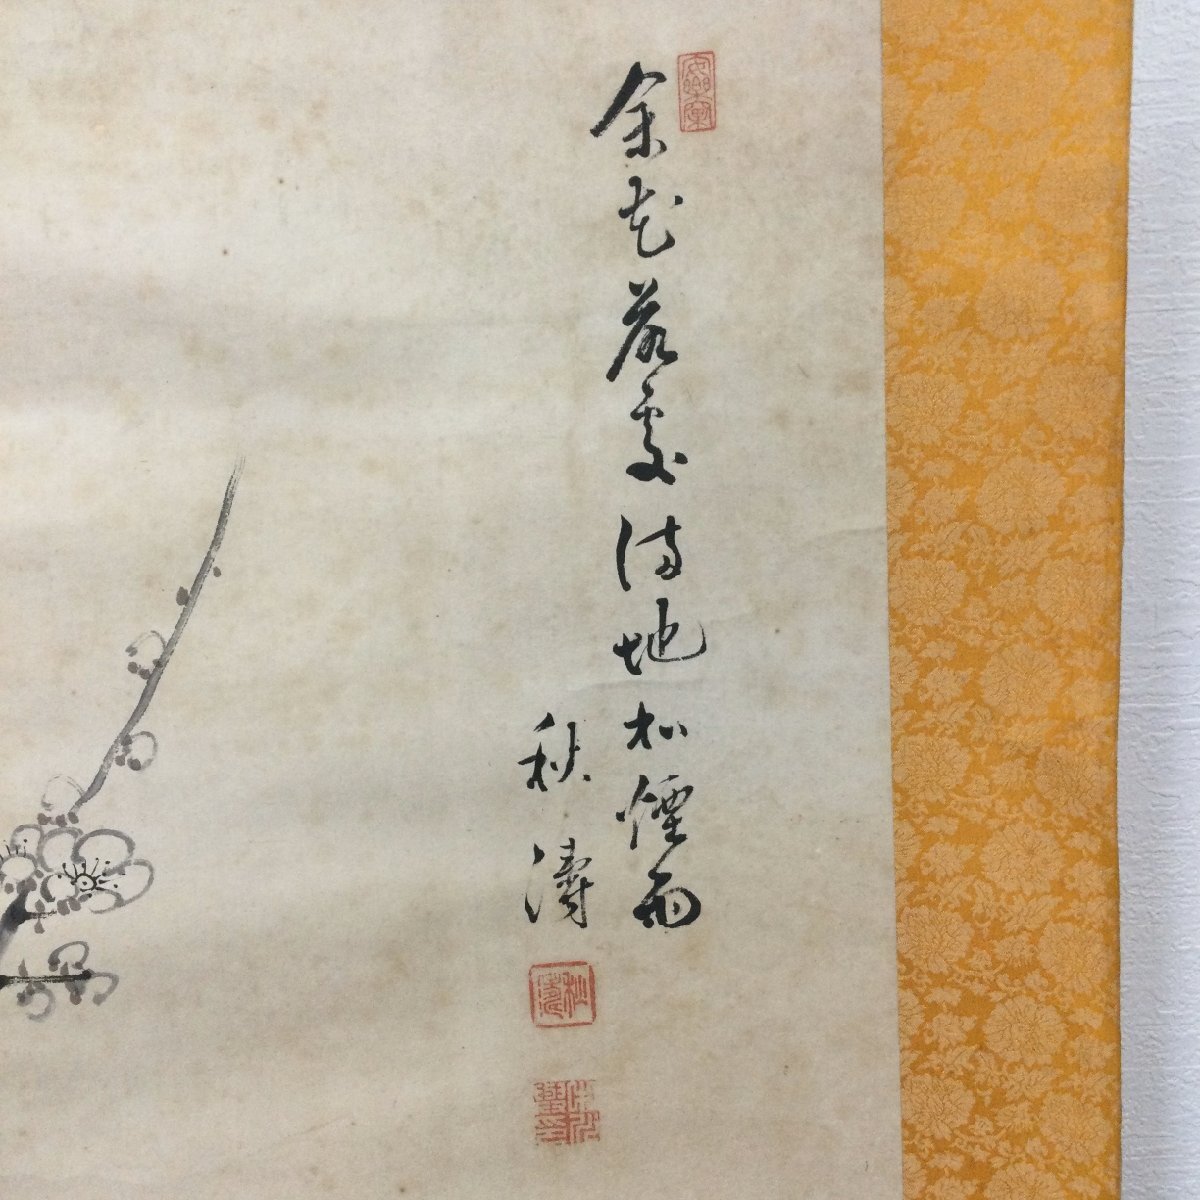 余花落處満地和煙雨
秋濤